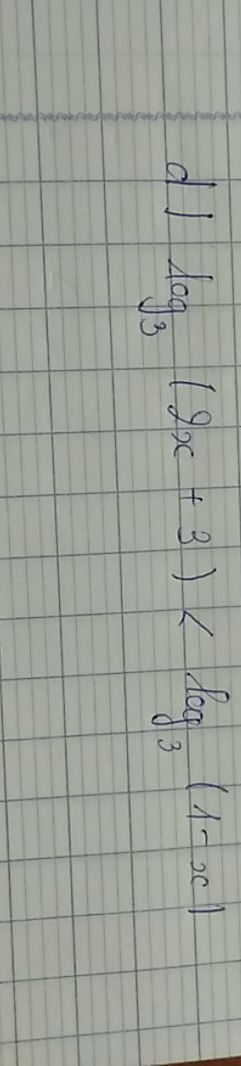 d) log₃ (2x + 3) < log₃ (1 - x)